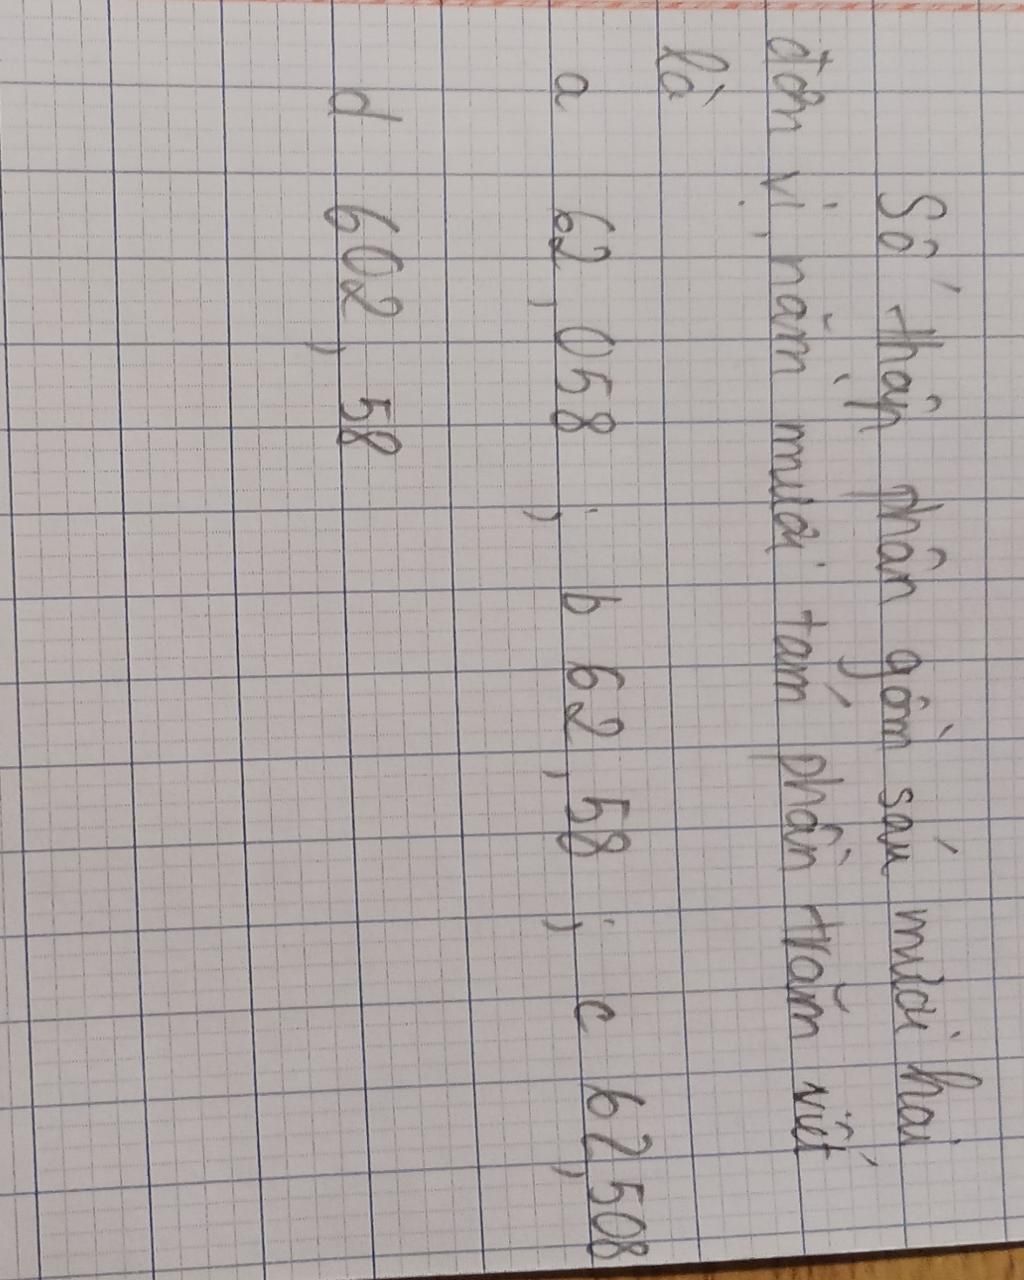 Số thập phân gồm sáu mươi hai
đơn vị, năm mươi tám phần trăm viết
là
a 62,058 ; b 62,58 ; c 62,508
d 602,58